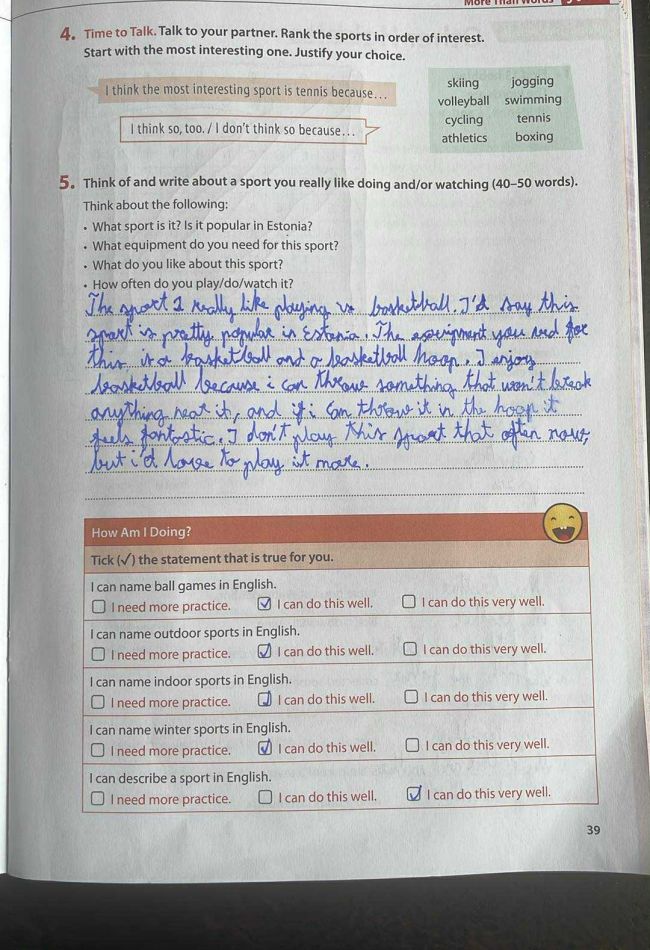 More Than Words
4. Time to Talk. Talk to your partner. Rank the sports in order of interest.
Start with the most interesting one. Justify your choice.
I think the most interesting sport is tennis because...
I think so, too. / I don't think so because...
skiing jogging
volleyball swimming
cycling tennis
athletics boxing
5. Think of and write about a sport you really like doing and/or watching (40–50 words).
Think about the following:
• What sport is it? Is it popular in Estonia?
• What equipment do you need for this sport?
• What do you like about this sport?
• How often do you play/do/watch it?
The sport I really like playing is basketball. I'd say this
sport is pretty popular in Estonia. The equipment you need for
this is a basketball and a basketball hoop. I enjoy
basketball because i can throw something that won't break
anything near it, and if i can throw it in the hoop it
feels fantastic. I don't play this sport that often now,
but i'd love to play it more.
How Am I Doing?
Tick (✓) the statement that is true for you.
I can name ball games in English.
☐ I need more practice. ☑ I can do this well. ☐ I can do this very well.
I can name outdoor sports in English.
☐ I need more practice. ☑ I can do this well. ☐ I can do this very well.
I can name indoor sports in English.
☐ I need more practice. ☑ I can do this well. ☐ I can do this very well.
I can name winter sports in English.
☐ I need more practice. ☑ I can do this well. ☐ I can do this very well.
I can describe a sport in English.
☐ I need more practice. ☐ I can do this well. ☑ I can do this very well.
39